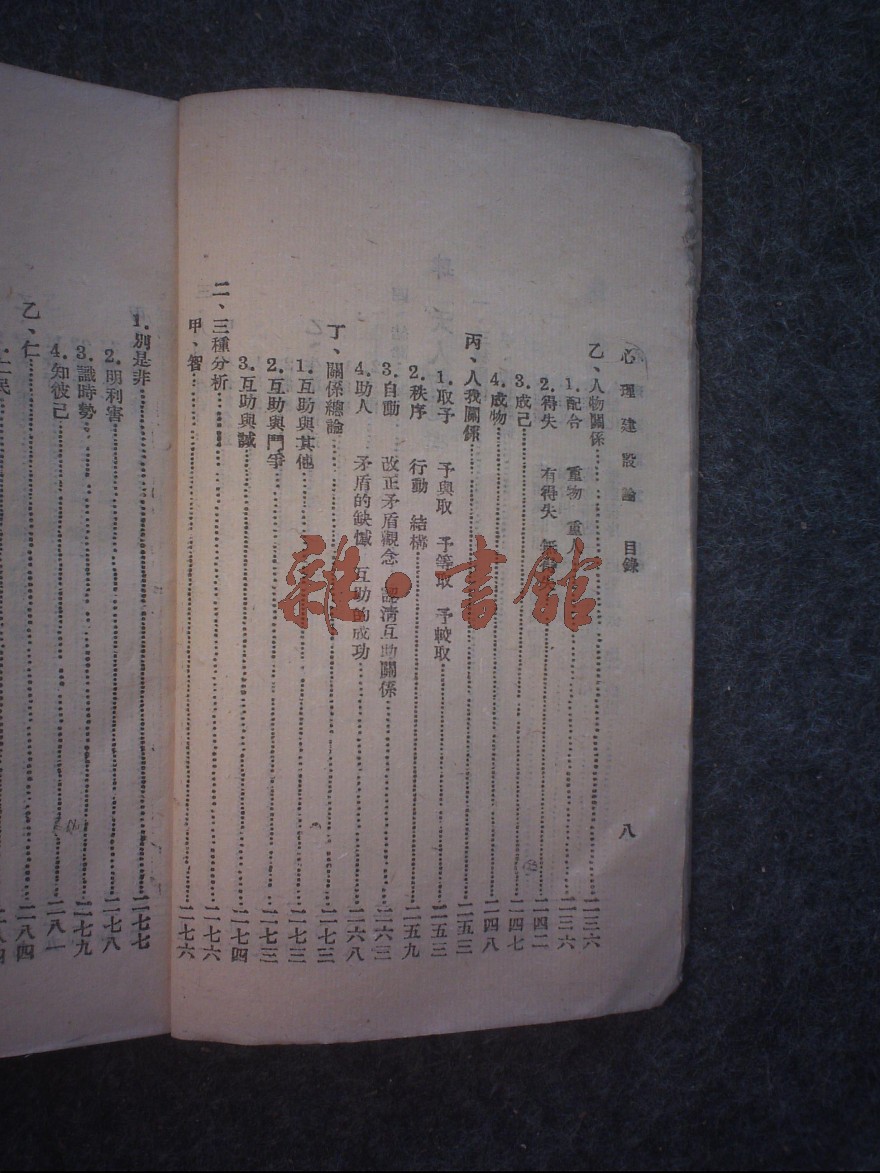 心理建設論 目錄 八
乙、人物關係……二三六
1.配合 重物 重人……二三六
2.得失 有得失 無……二四二
3.成己……二四七
4.成物……二四八
丙、人我關係……二五三
1.取予 予與取 予等取 予較取……二五三
2.秩序 行動 結構……二五九
3.自動 改正矛盾觀念 認淸互助關係……二六三
4.助人 矛盾的缺憾 互助的成功……二六八
丁、關係總論……二七三
1.互助與其他……二七三
2.互助與鬥爭……二七三
3.互助與誠……二七四
二、三種分析……二七六
甲、智……二七六
1.別是非……二七七
2.明利害……二七八
3.識時勢……二七九
4.知彼己……二八一
乙、仁……二八四
1.仁民……二八四
雜·書館